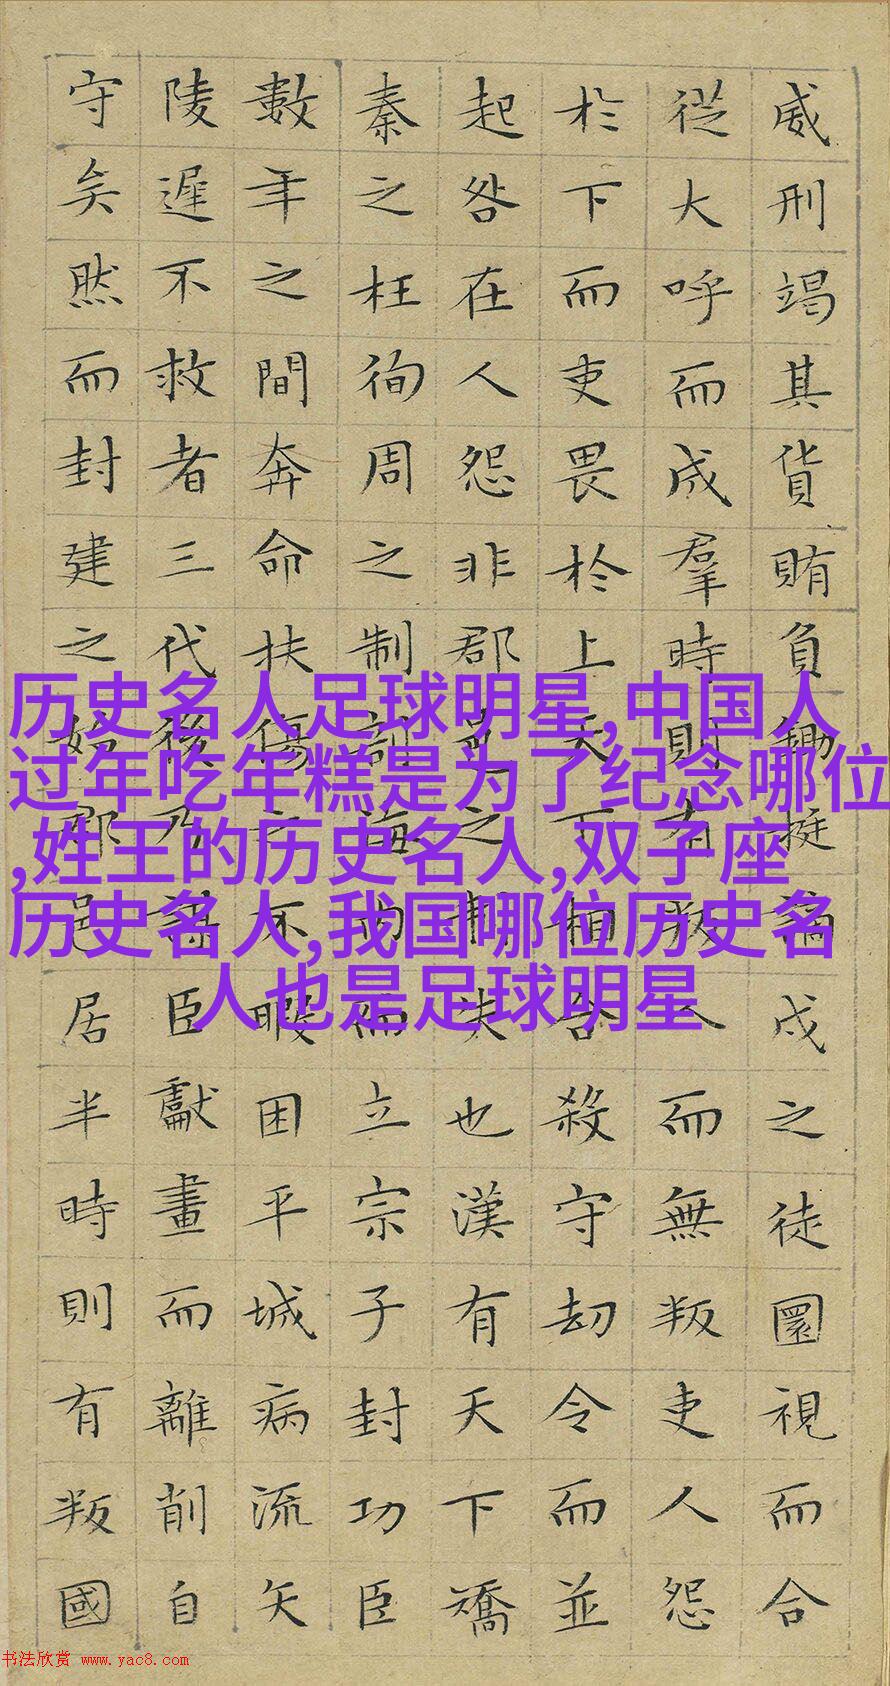 威刑竭其貨賄負鋤梃謫戍之徒圜視而合
從大呼而成羣時則有叛人而無叛吏人怨
於下而吏畏於上天下相合殺守劫令而並
起咎在人怨非郡邑之制失也漢有天下矯
秦之枉徇周之制剖海內而立宗子封功臣
數年之間奔命扶傷之不暇困平城病流矢
陵遲不救者三代後乃謀臣獻畫而離削自
守矣然而封建之始郡邑居半時則有叛國
历史名人足球明星,中国人
过年吃年糕是为了纪念哪位
,姓王的历史名人,双子座
历史名人,我国哪位历史名
人也是足球明星
书法欣赏 www.yac8.com